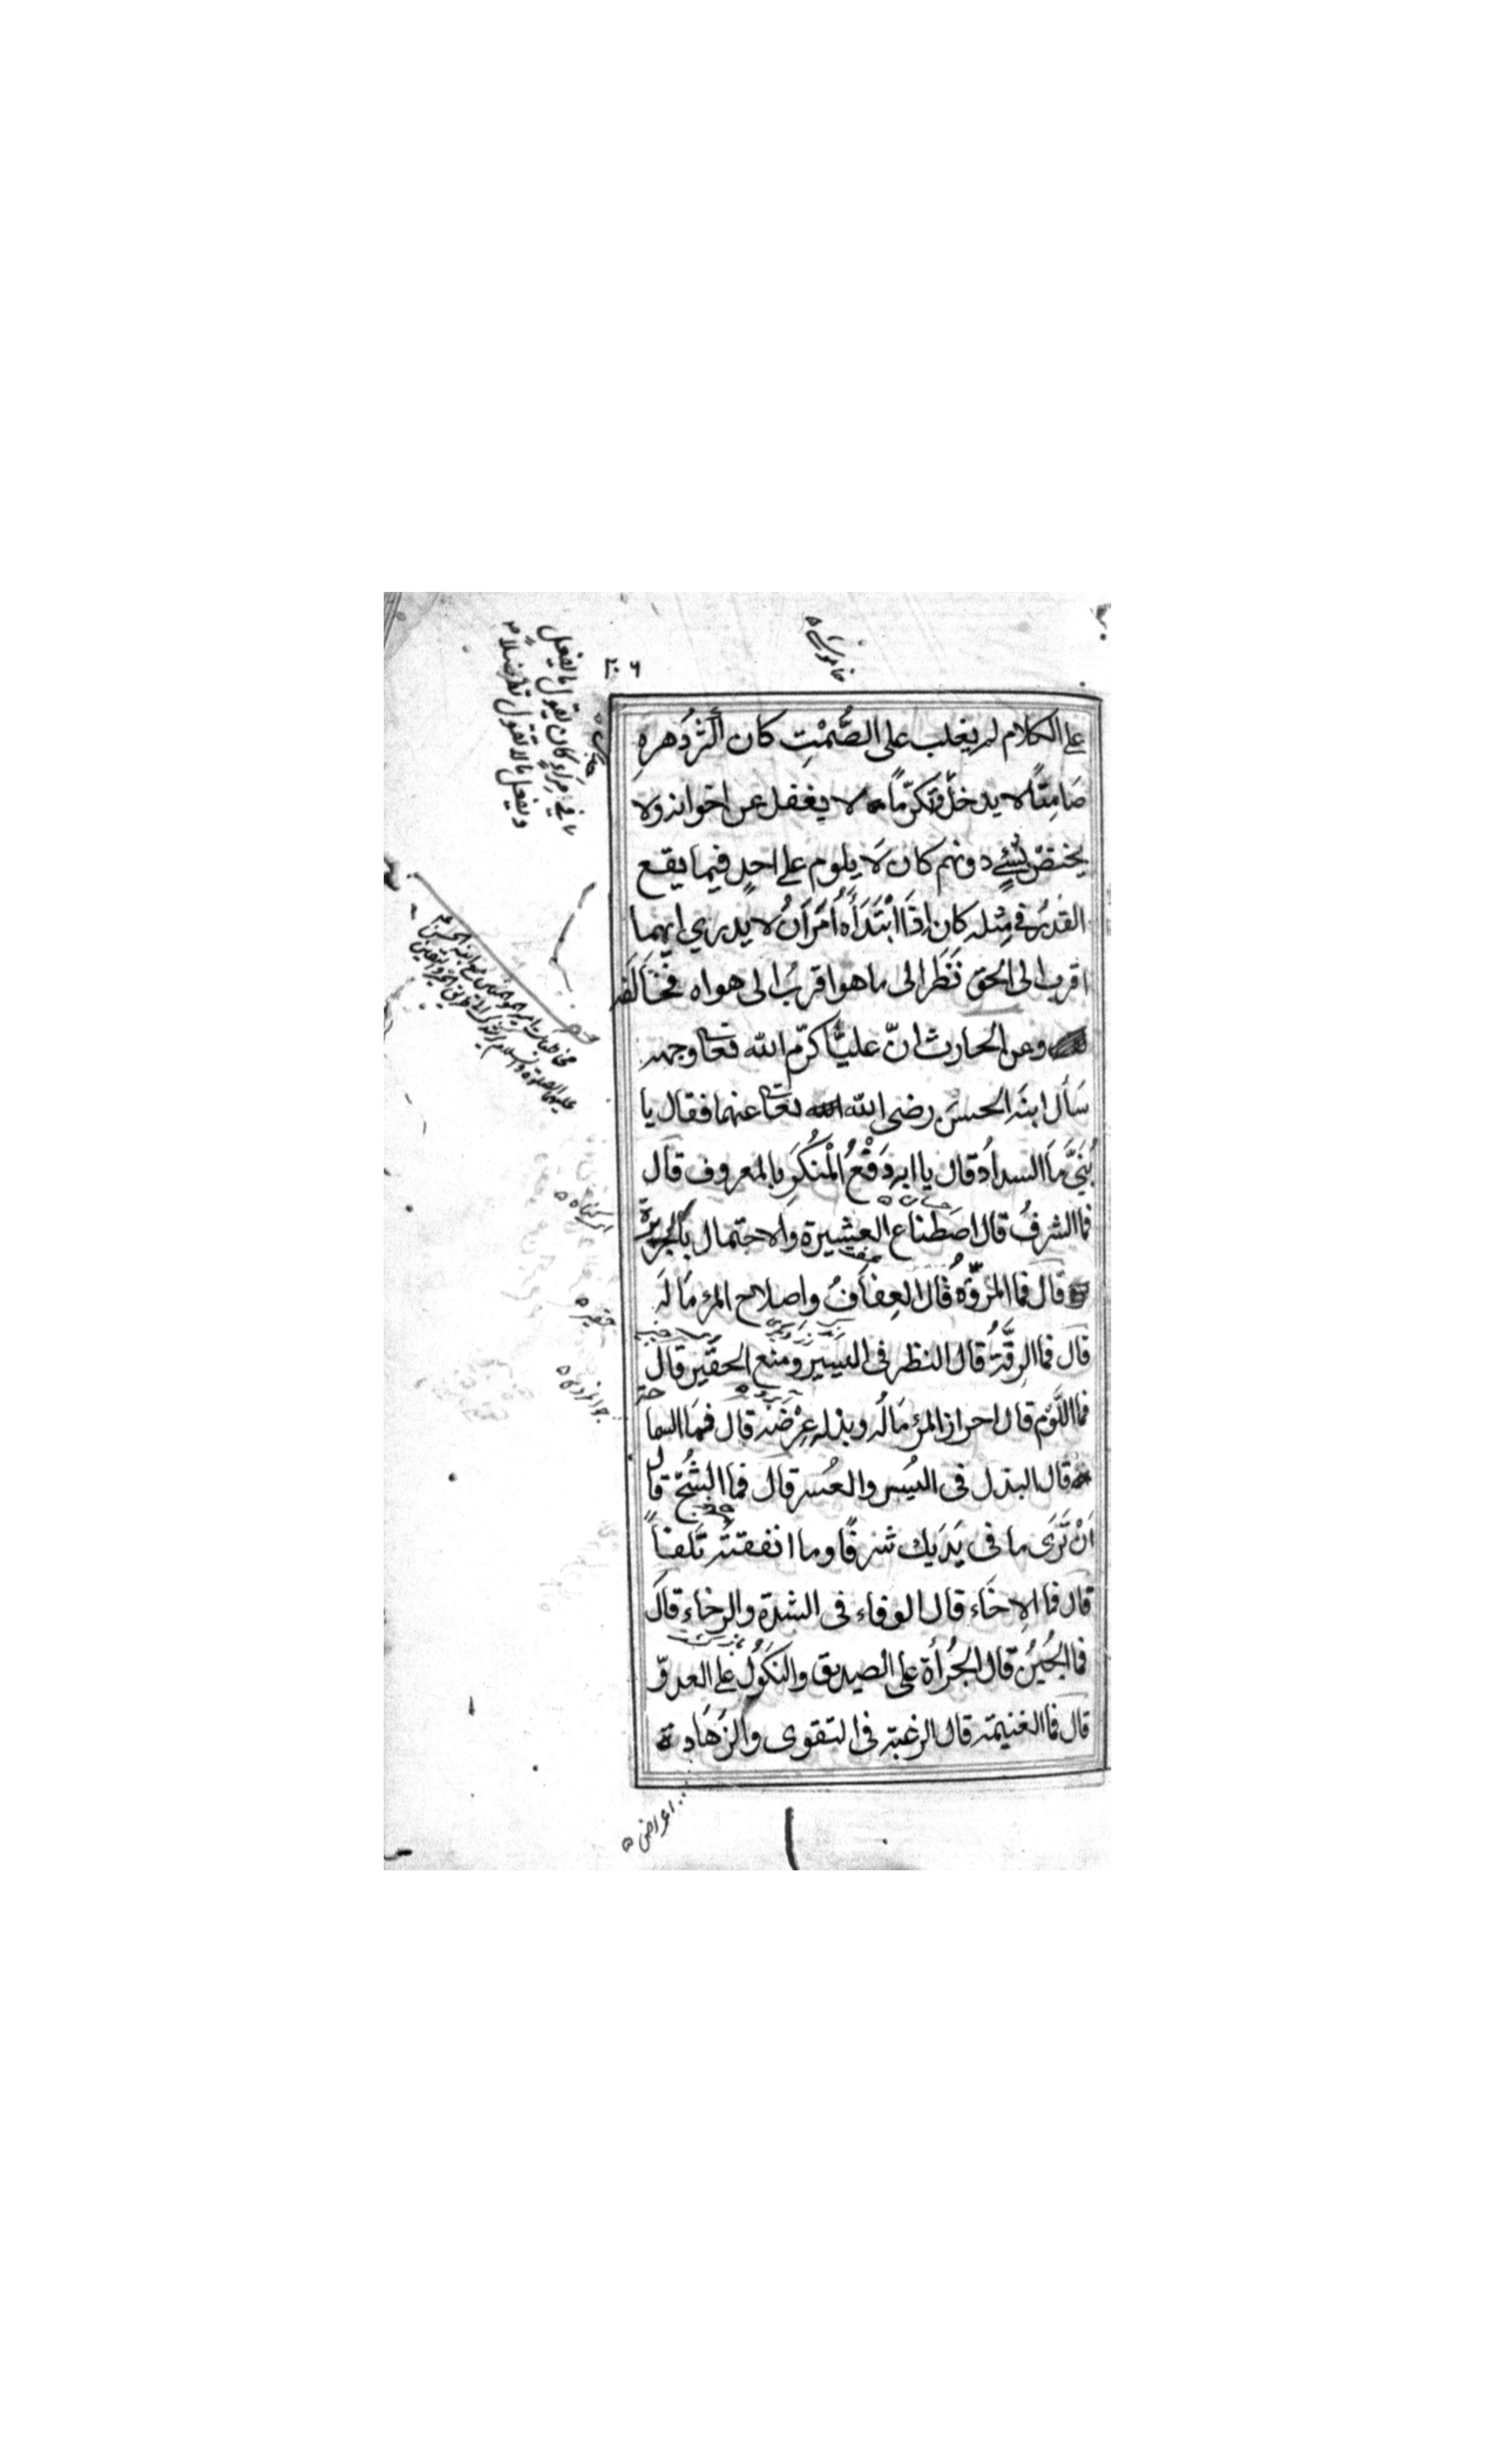 خاموشی
٢٠٦
على الكلام لم يغلب على الصُّمْتِ كان أكثرُ دهرهِ
صَامِتًا لا يدخل تكرّماً لا يغفل عن اخوانه ولا
يختصّ بشئٍ دونهم كان لَا يلوم على احدٍ فيما يقع
القدرُ فى مِثله كان اِذَا ابْتَدَأَهُ أَمْرَانُ لا يدرى ايهما
اقرب الى الحق نَظَرَ الى ما هو اقربُ الى هواه فخَالَفه
وعن الحارث انّ عليًّا كرّم الله تعالى وجهه
سَأَل ابنَه الحسنَ رضى الله تعالى عنهما فقال يا
بُنَيَّ مَا السدادُ قال يا ابه دَفْعُ الْمُنْكَرِ بالمعروف قال
فما الشرفُ قال اصْطناع العشيرة والاحتمال بالجريرة
قال فما المروّةُ قال العِفافُ واصلاح المرء مَا لَه
قال فما الرقّةُ قال النظر فى اليسير ومنع الحقير قال
فما اللَّوْم قال احراز المرء مَالُه وبذله عِرْضه قال فمَا السما
حة قال البذل فى اليُسر والعُسر قال فما الشُحّ قال
اَنْ تَرَى ما فى يَدَيك شرفًا وما انفقتَه تَلفاً
قال فما الاِخَاء قال الوفاء فى الشدة والرخاء قال
فما الجُبنُ قال الجُرأة على الصديق والنكولُ على العدوّ
قال فما الغنيمة قال الرغبة فى التقوى والزَهَادة
ما فى مراءٍ كان يقول ما يفعل
ويفعل ما لا يقول تفضلاً
حقير
جوانمردى
اعراض